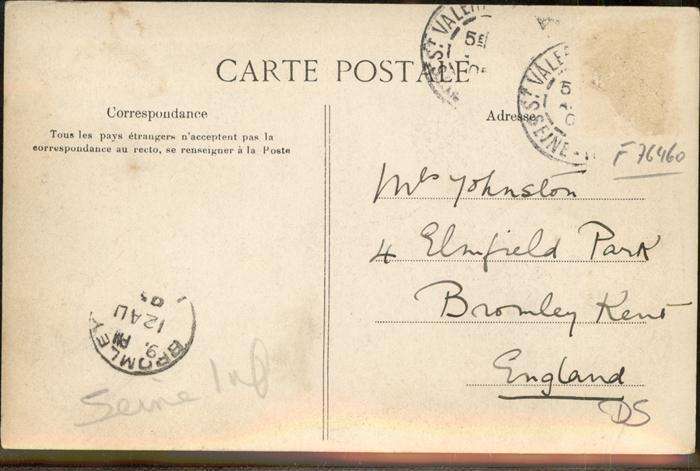 CARTE POSTALE
Correspondance
Tous les pays étrangers n'acceptent pas la
correspondance au recto, se renseigner à la Poste
Adresse
ST VALE
5
SEINE-
ST VALE
5
F 76460
Mrs Johnston
4 Elmfield Park
Bromley Kent
England
DS
BROMLEY
9. PM
12 AU
Seine Inf